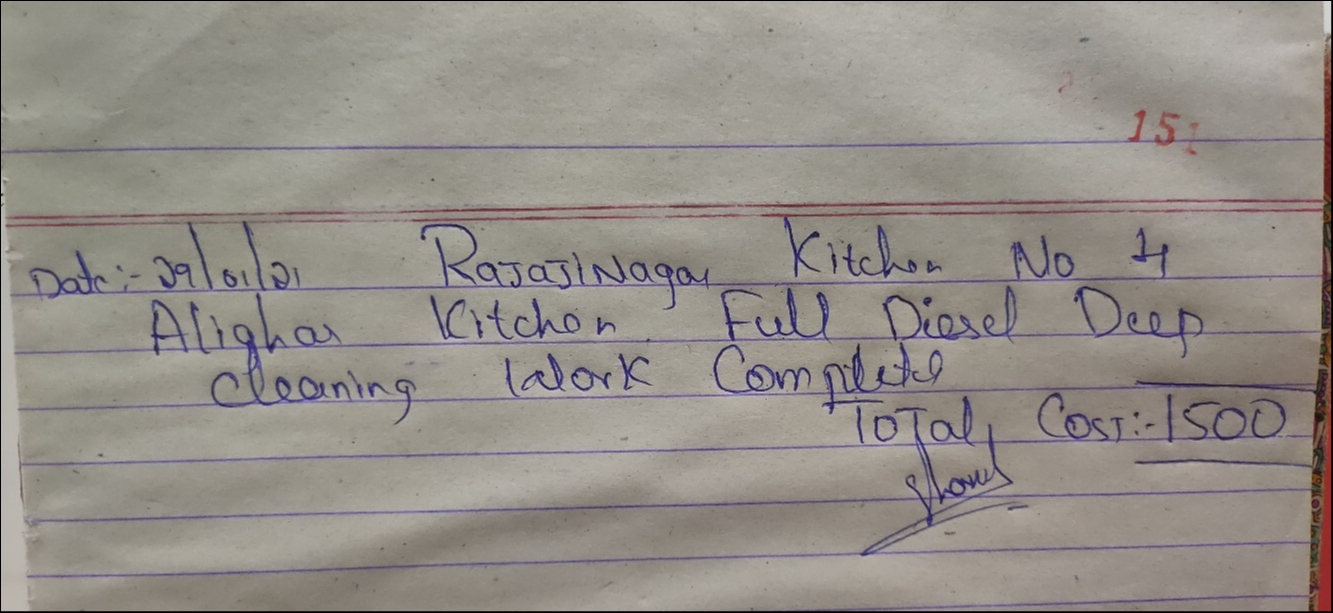 151
Date:- 29/01/21 RajajiNagar Kitchen No 4
Alighar Kitchen Full Diesel Deep
Cleaning Work Complete
Total Cost:- 1500